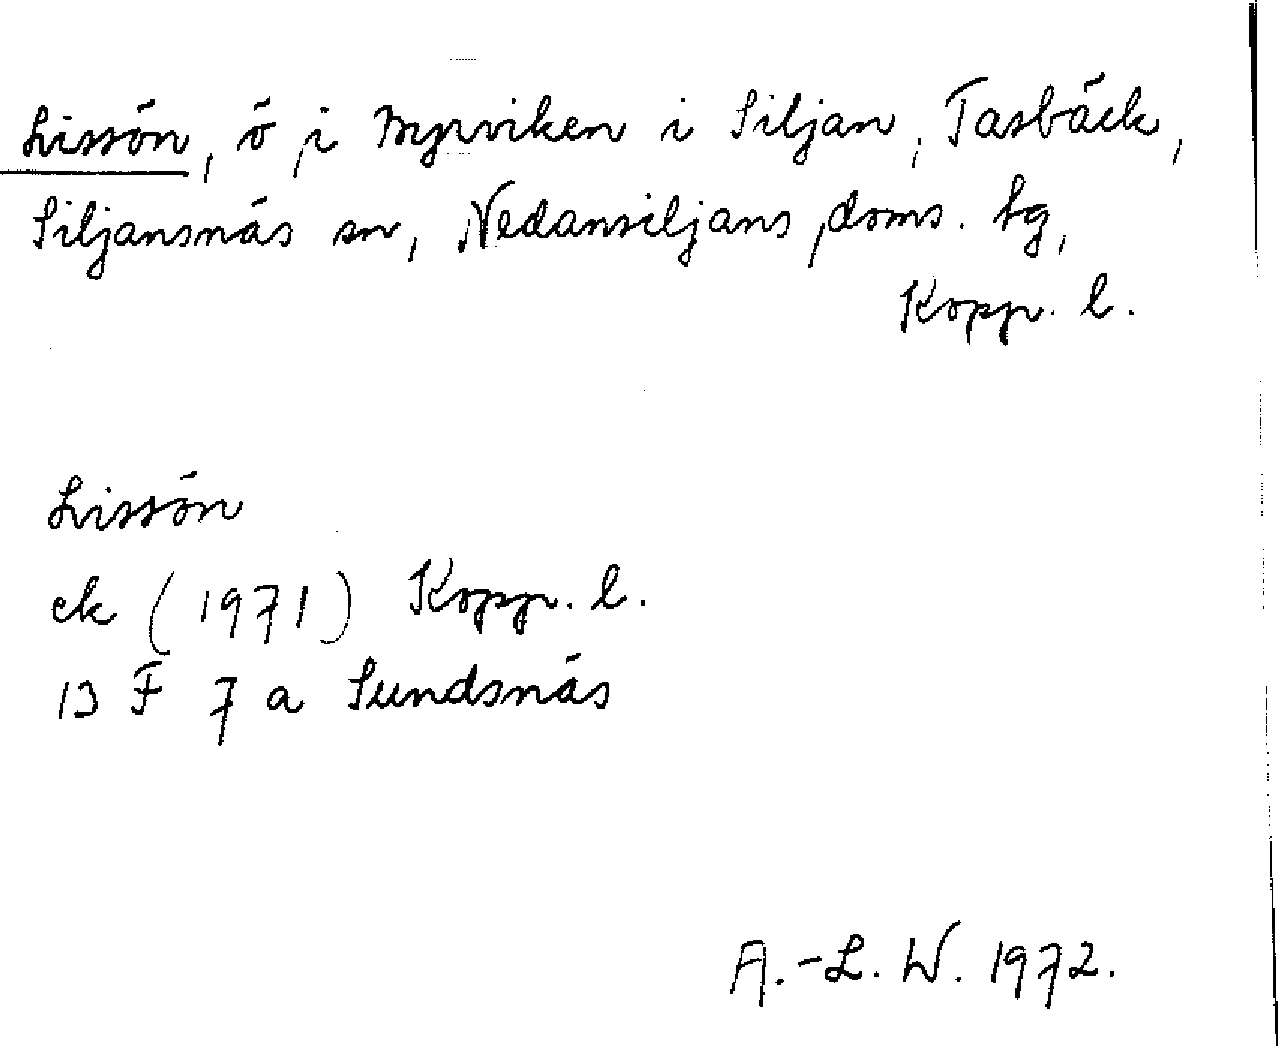 Lissön, ö i Myrviken i Siljan, Tasbäck,
Siljansnäs sn, Nedansiljans doms. tg,
Kopp. l.
Lissön
ek (1971) Kopp. l.
13 F 7 a Sundsnäs
A.-L. W. 1972.